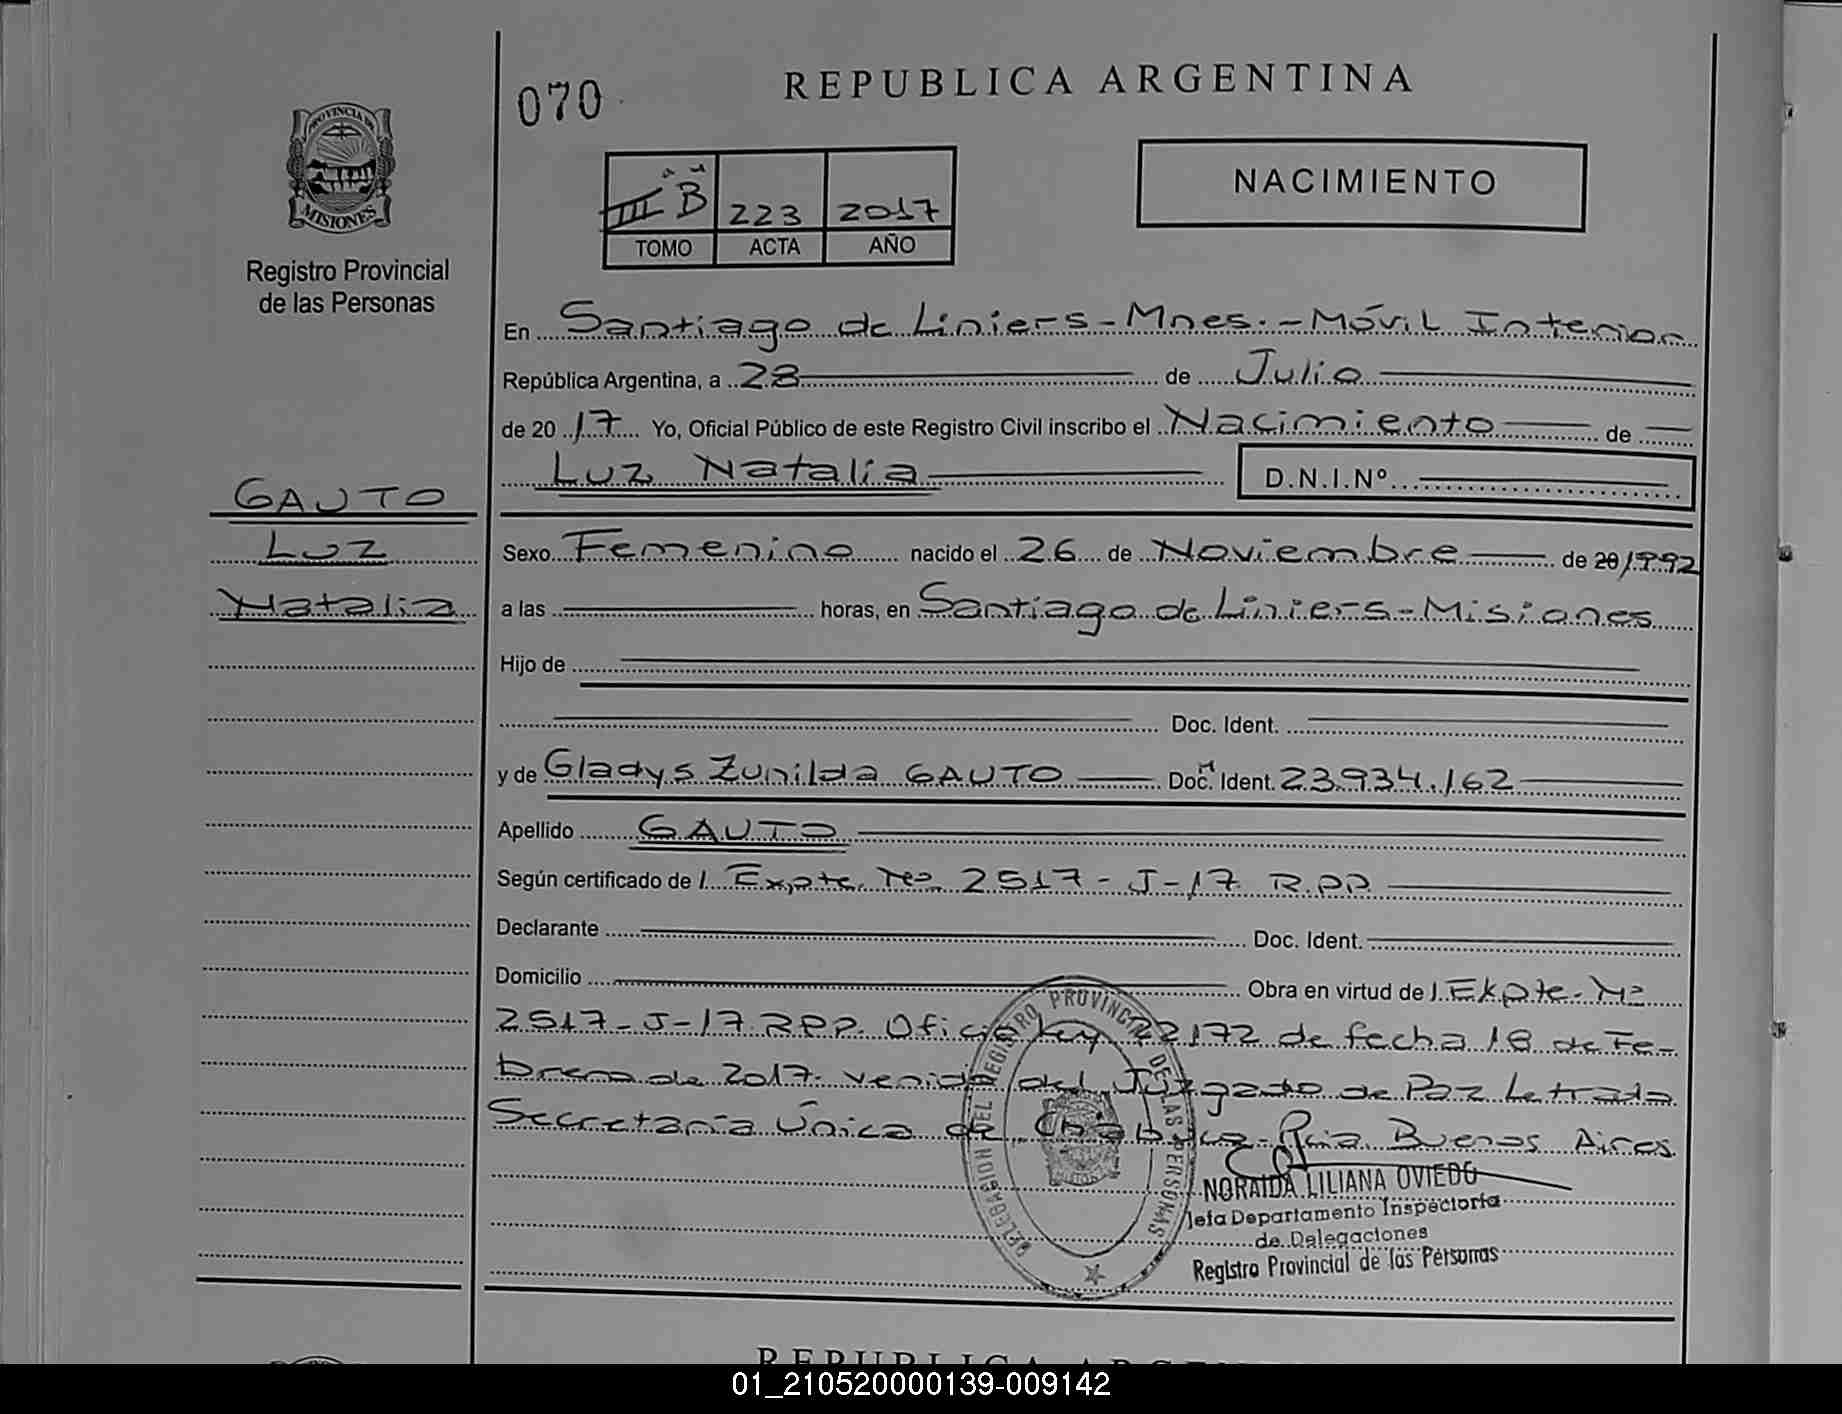 070
REPUBLICA ARGENTINA
PROVINCIA DE
MISIONES
Registro Provincial
de las Personas
III B 223 2017
TOMO ACTA AÑO
NACIMIENTO
En Santiago de Liniers - Mnes. - Móvil Interior
República Argentina, a 28 de Julio
de 20 17 Yo, Oficial Público de este Registro Civil inscribo el Nacimiento de
Luz Natalia D.N.I.Nº
GAUTO
Luz
Natalia
Sexo Femenino nacido el 26 de Noviembre de 20 1992
a las horas, en Santiago de Liniers - Misiones
Hijo de
Doc. Ident.
y de Gladys Zunilda GAUTO Doc. Ident. 23.934.162
Apellido GAUTO
Según certificado de l. Expte. Nº 2517 - J - 17 R.P.P.
Declarante Doc. Ident.
Domicilio Obra en virtud de l. Expte. Nº
2517 - J - 17 R.P.P. Oficio Ley 22172 de fecha 18 de Fe-
brero de 2017. venido del Juzgado de Paz Letrado
Secretaría Única de Pcia. Buenos Aires.
DELEGACION DEL REGISTRO PROVINCIAL DE LAS PERSONAS
NORAIDA LILIANA OVIEDO
Jefa Departamento Inspectoría
de Delegaciones
Registro Provincial de las Personas
REPUBLICA
01_210520000139-009142